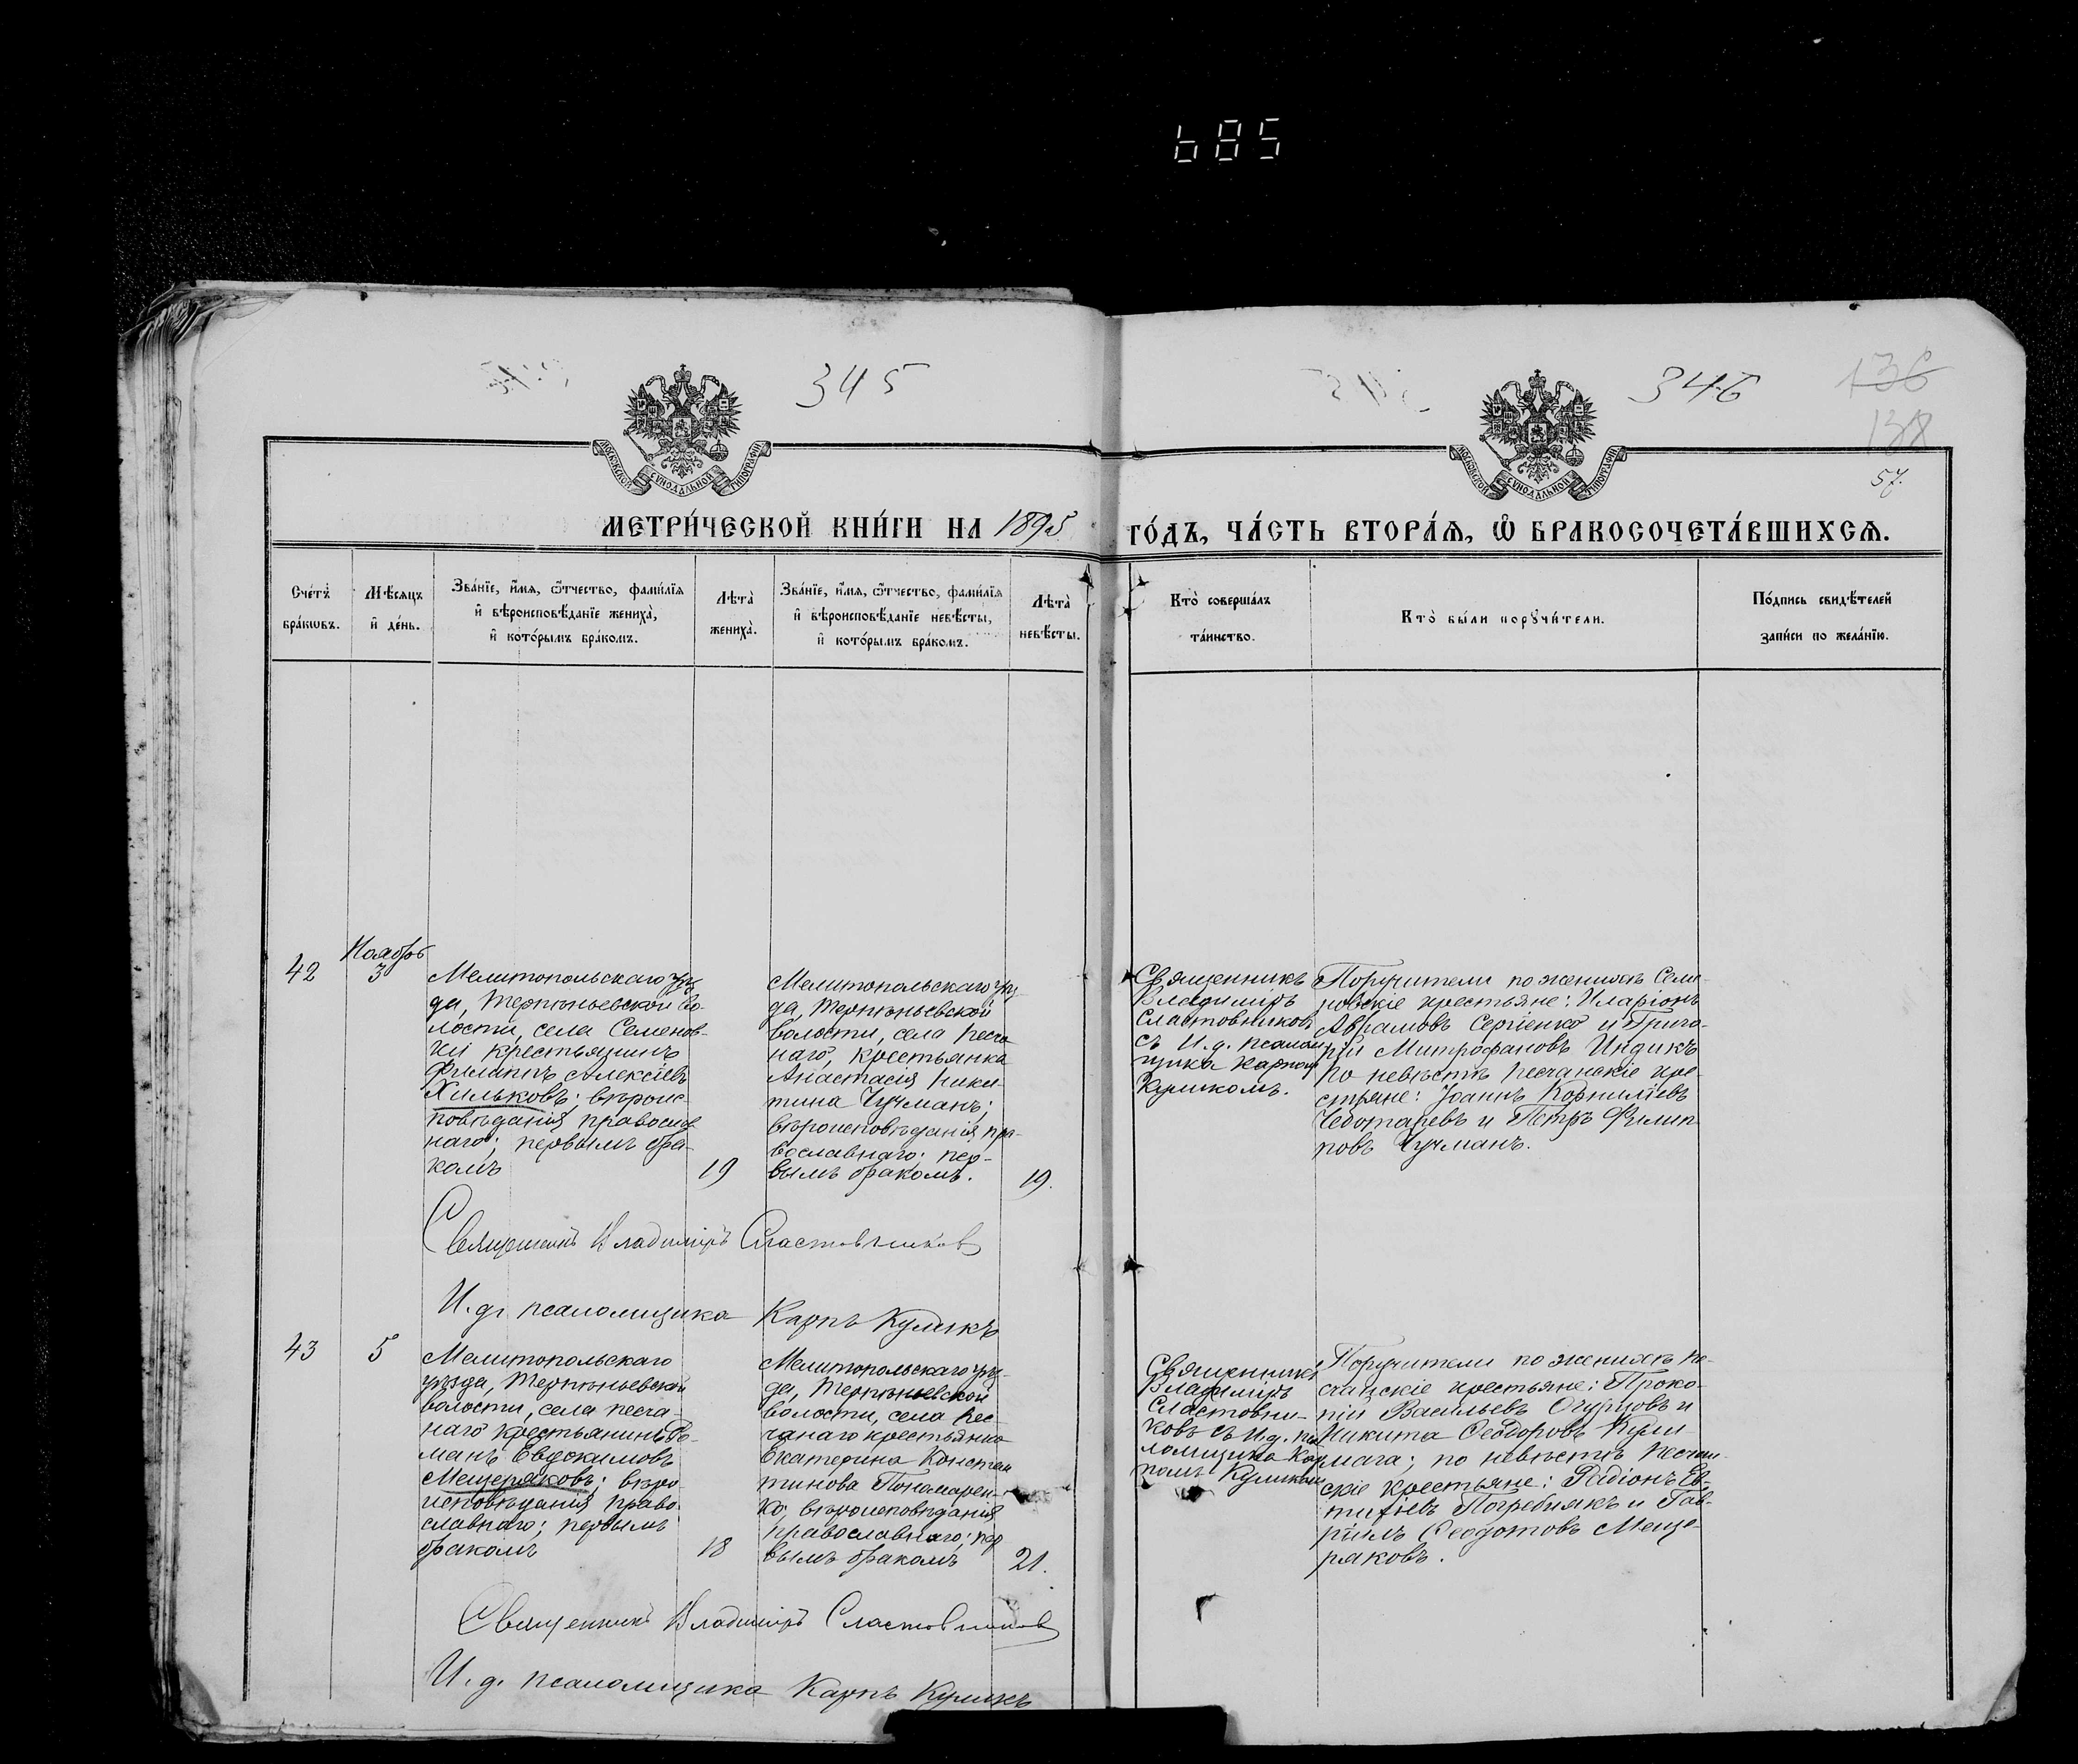 685
345
346
136
138
57.
МОСКОВСКОЙ СѴНОДАЛЬНОЙ ТИПОГРАФІИ
МОСКОВСКОЙ СѴНОДАЛЬНОЙ ТИПОГРАФІИ
МЕТРИ́ЧЕСКОЙ КНИ́ГИ НА 1895 ГО́ДЪ, ЧА́СТЬ ВТОРА́Я, Ѽ БРАКОСОЧЕТА́ВШИХСЯ.
Сче́тъ
бра́кωвъ.
Мѣ́сяцъ
и҆ де́нь.
Зва́нїе, и҆́мя, ѻ҆́тчество, фами́лїя
и҆ вѣроисповѣ́данїе жениха̀,
и҆ кото́рымъ бра́комъ.
Лѣ́та̀
жениха̀.
Зва́нїе, и҆́мя, ѻ҆́тчество, фами́лїя
и҆ вѣроисповѣ́данїе невѣ́сты,
и҆ кото́рымъ бра́комъ.
Лѣ́та̀
невѣ́сты.
Кто̀ соверша́лъ
та́инство.
Кто̀ бы́ли порꙋчи́тели.
По́дпись свидѣ́телей
за́писи по жела́нїю.
42
Ноябрь
3
Мелитопольскаго уѣз-
да, Терпѣньевской во-
лости, села Семенов-
ки крестьянинъ
Филиппъ Алексіевъ
Хильковъ; вѣроис-
повѣданія православ
наго; первымъ бра-
комъ
19
Мелитопольскаго уѣз-
да, Терпѣньевской
волости, села Песча
наго, крестьянка
Анастасія Ники-
тина Чучманъ;
вѣроисповѣданія пра-
вославнаго; пер-
вымъ бракомъ.
19.
Священникъ
Владиміръ
Сластовниковъ
съ И. д. псалом
щика Карпомъ
Куликомъ.
Поручители по женихѣ Семе
новскіе крестьяне: Иларіонъ
Аврамовъ Сергіенко и Григо-
рій Митрофановъ Индикъ
по невѣстѣ Песчанскіе кре-
стьяне: Іоаннъ Корниліевъ
Чеботаревъ и Петръ Филип
повъ Чучманъ.
Священникъ Владиміръ Сластовниковъ
И. д. псаломщика Карпъ Куликъ
43
5
Мелитопольскаго
уѣзда, Терпѣньевской
волости, села Песча-
наго крестьянинъ Ро-
манъ Евдокимовъ
Мещеряковъ; вѣро
исповѣданія право-
славнаго; первымъ
бракомъ
18
Мелитопольскаго уѣз-
да, Терпѣньевской
волости, села Пес-
чанаго крестьянка
Екатерина Констан
тинова Пономарен-
ко; вѣроисповѣданія
православнаго; пер
вымъ бракомъ
21.
Священникъ
Владиміръ
Сластовни-
ковъ съ И. д. пса
ломщика Кар
помъ Куликомъ
Поручители по женихѣ Пе-
счанскіе крестьяне: Проко-
пій Васильевъ Огурцовъ и
Никита Ѳеодоровъ Кули
мага; по невѣстѣ Песчан-
скіе крестьяне: Родіонъ Ев-
тифіевъ Погребнякъ и Гав-
ріилъ Ѳеодотовъ Меще-
ряковъ.
Священникъ Владиміръ Сластовниковъ
И. д. псаломщика Карпъ Куликъ